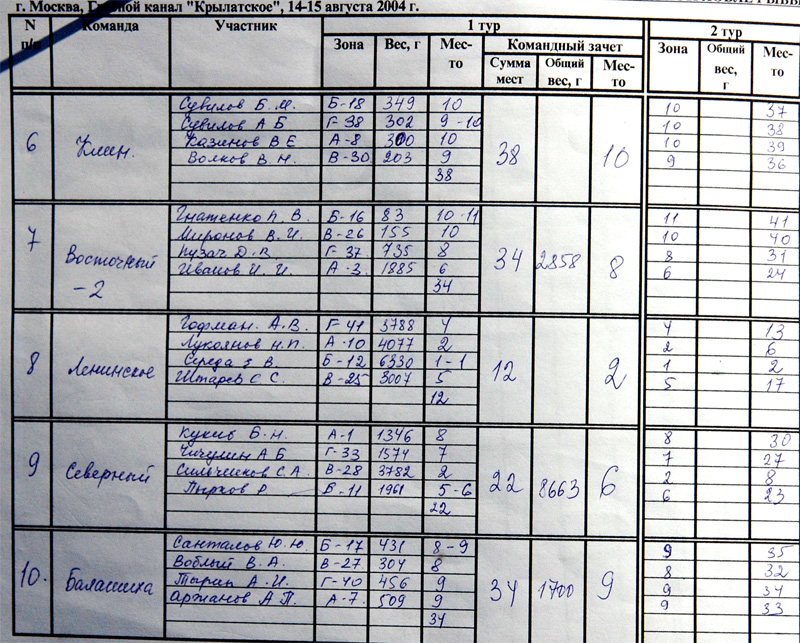 г. Москва, Гребной канал "Крылатское", 14-15 августа 2004 г.
N п/п Команда Участник 1 тур 2 тур
Зона Вес, г Мес-то Командный зачет Зона Общий вес, г Мес-то
Сумма мест Общий вес, г Мес-то
Сувилов Б.М. Б-18 349 10 10 37
Сувилов А Б Г-38 302 9-10 10 38
6 Клин. Казинов В Е А-8 300 10 38 10 10 39
Волков В.Н. В-30 203 9 9 36
38
Гнатенко П. В. Б-16 83 10-11 11 41
7 Миронов В.И. В-26 155 10 10 40
Восточный Пузач Д.В. Г-37 735 8 34 2858 8 8 31
-2 Иванов И. И. А-3 1885 6 6 24
34
Гофман. А.В. Г-41 3788 4 4 13
Лукоянов Н.П. А-10 4077 2 2 6
8 Ленинское Середа В. Б-12 6330 1-1 12 2 1 2
Штарев С С. В-25 3007 5 5 17
12
Кукиб Б.Н. А-1 1346 8 8 30
Чичулин А Б Г-33 1574 7 7 27
9 Северный Сильченков С А. В-28 3782 2 22 8663 6 2 8
Пырков Р. Б-11 1961 5-6 6 23
22
Санталов Ю.Ю. Б-17 431 8-9 9 35
Воблый В.А. В-27 304 8 8 32
10. Балашиха Тырин А.И. Г-40 456 9 34 1700 9 9 34
Аржанов А П. А-7. 509 9 9 33
34